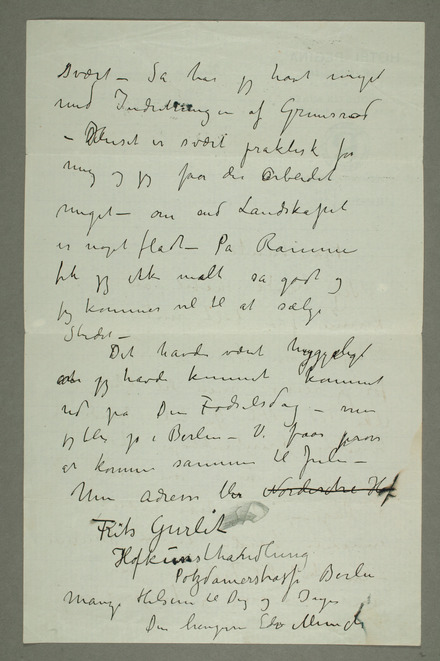 svært – Så har jeg havt meget
med Indretningen af Grimsrød
– Huset er svært praktisk for
mig og jeg faar der arbeidet
meget – om end Landskabet
er noget fladt – På Ramme
fik jeg ikke malt så godt og
jeg kommer vel til at sælge
Stedet –
Det havde vært hyggeligt
om jeg havde kunnet kommet
ned på Din Fødselsdag – men
jeg blev jo i Berlin – Vi faar prøve
at komme sammen til Julen –
Min adresse blir Nordischer Hof
Frits Gurlit
Hofkunsthandlung
Potzdamerstrasse Berlin
Mange Hilsener til Dig og Inger
Din hengivne Edv Munch